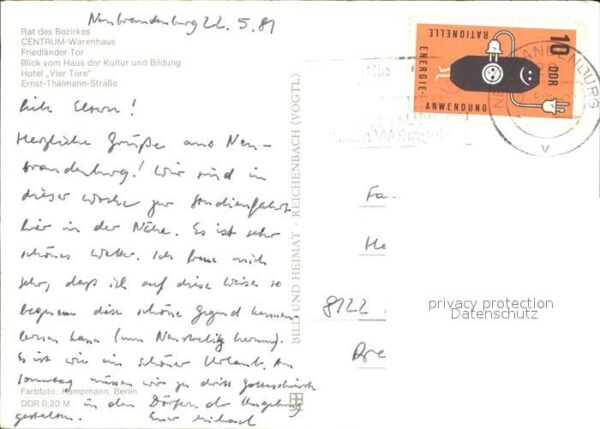 Neubrandenburg 22. 5. 81
Rat des Bezirkes
CENTRUM-Warenhaus
Friedländer Tor
Blick vom Haus der Kultur und Bildung
Hotel „Vier Tore"
Ernst-Thälmann-Straße
Liebe Eltern!
Herzliche Grüße aus Neu-
brandenburg! Wir sind in
dieser Woche zur Studienfahrt
hier in der Nähe. Es ist sehr
schönes Wetter. Ich freue mich
sehr, daß ich auf diese Weise so
bequem diese schöne Gegend kennen-
lernen kann (um Neustrelitz herum).
Es ist wie ein schöner Urlaub. Am
Sonntag müssen wir zu dritt Gottesdienste
in den Dörfern der Umgebung
gestalten. Euer Michael
Farbfoto: Kampmann, Berlin
DDR 0,20 M
BILD UND HEIMAT · REICHENBACH (VOGTL)
10 DDR
RATIONELLE
ENERGIE-
ANWENDUNG
NEUBRANDENBURG
v
Fa
He
8122
Dre
privacy protection
Datenschutz